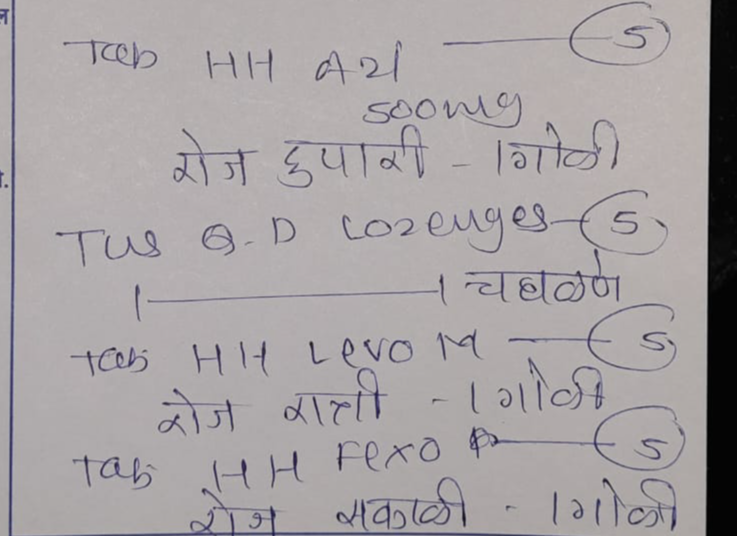 Tab HH AZI — 5
500mg
रोज दुपारी - 1 गोळी
TUS Q-D Lozenges — 5
|—| चघळणे
Tab HH Levo M — 5
रोज रात्री - 1 गोळी
Tab HH Fexo — 5
रोज सकाळी - 1 गोळी